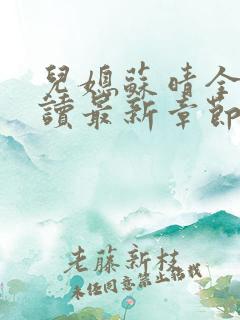 兒媳蘇晴全
讀最新章節
老藤新枝
未经同意禁止转载